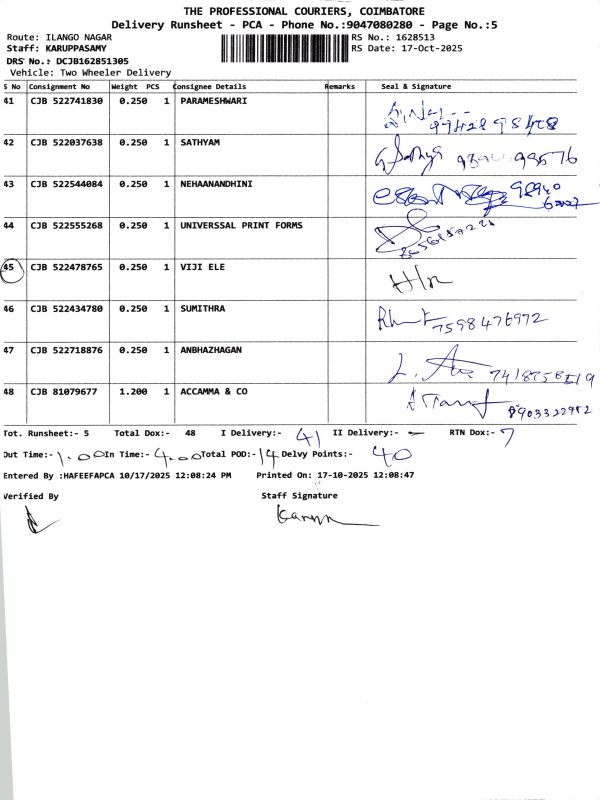 THE PROFESSIONAL COURIERS, COIMBATORE
Delivery Runsheet - PCA - Phone No.:9047080280 - Page No.:5
Route: ILANGO NAGAR RS No.: 1628513
Staff: KARUPPASAMY RS Date: 17-Oct-2025
DRS No.: DCJB162851305
Vehicle: Two Wheeler Delivery
S No Consignment No Weight PCS Consignee Details Remarks Seal & Signature
41 CJB 522741830 0.250 1 PARAMESHWARI
42 CJB 522037638 0.250 1 SATHYAM
43 CJB 522544084 0.250 1 NEHAANANDHINI
44 CJB 522555268 0.250 1 UNIVERSSAL PRINT FORMS
45 CJB 522478765 0.250 1 VIJI ELE
46 CJB 522434780 0.250 1 SUMITHRA 7598476972
47 CJB 522718876 0.250 1 ANBHAZHAGAN
48 CJB 81079677 1.200 1 ACCAMMA & CO
Tot. Runsheet:- 5 Total Dox:- 48 I Delivery:- 41 II Delivery:- - RTN Dox:- 7
Out Time:- 1.00 In Time:- 4.00 Total POD:- 14 Delvy Points:- 40
Entered By :HAFEEFAPCA 10/17/2025 12:08:24 PM Printed On: 17-10-2025 12:08:47
Verified By Staff Signature